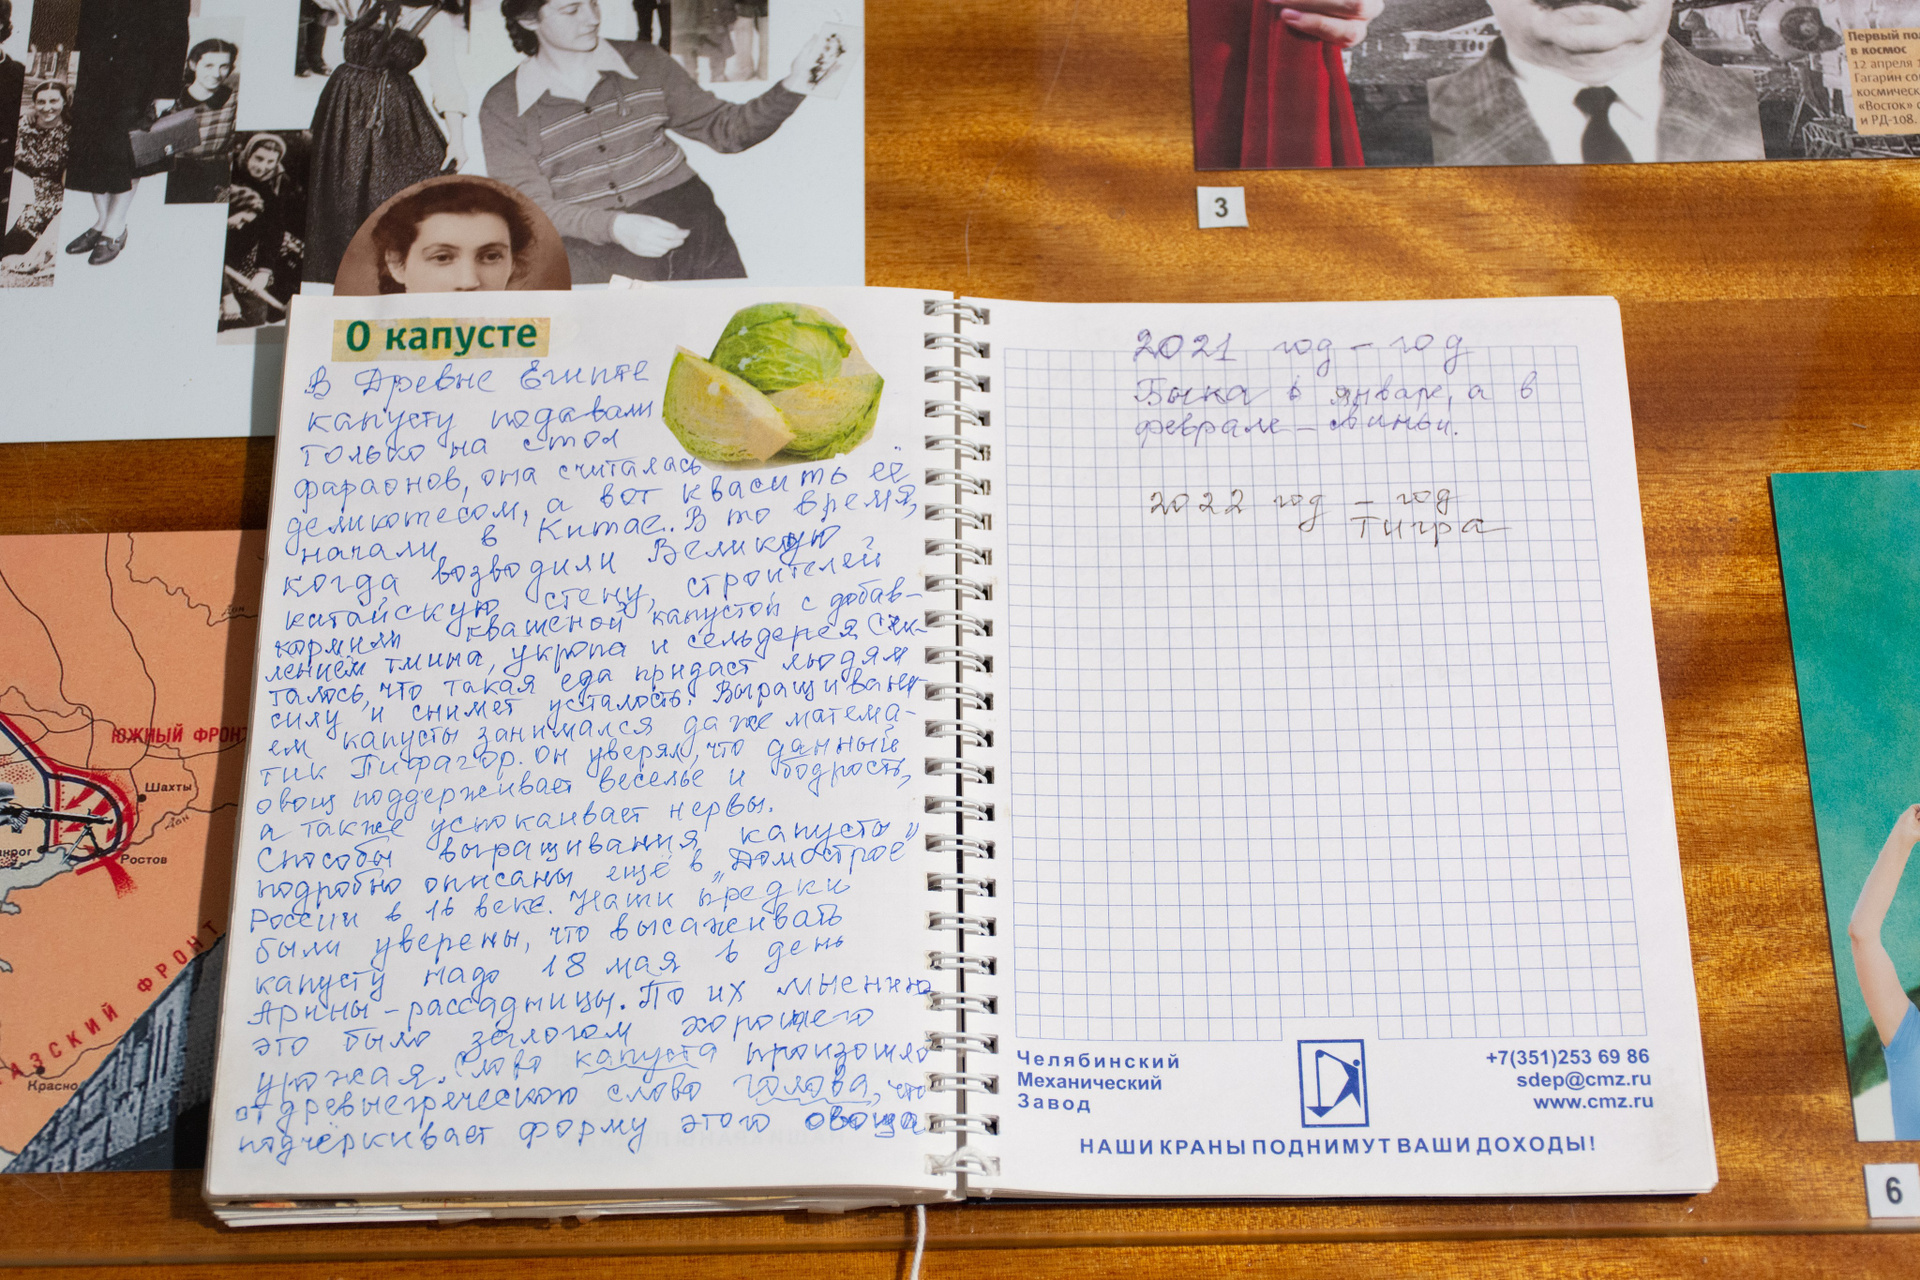 Первый пол
в космос
12 апреля 1
Гагарин со
космическ
«Восток» с
и РД-108.
3
О капусте
В Древне Египте
капусту подавали
только на стол
фараонов, она считалась
деликотесом, а вот квасить её
начали в Китае. В то время,
когда возводили Великую
китайскую стену, строителей
кормили квашеной капустой с добав-
лением тмина, укропа и сельдерея Счи-
талось, что такая еда придаст людям
силу и снимет усталость. Выращивани-
ем капусты занимался даже матема-
тик Пифагор. Он уверял, что данный
овощ поддерживает веселье и бодрость,
а также успокаивает нервы.
Способы выращивания капусты
подробно описаны ещё в „Домострое"
России в 16 веке. Наши предки
были уверены, что высаживать
капусту надо 18 мая в день
Арины-рассадницы. По их мнению
это было залогом хорошего
урожая. Слово капуста произошло
от древнегреческого слово голова, что
подчёркивает форму этого овоща
2021 год - год
Быка в январе, а в
феврале - свиньи.
2022 год - год
Тигра
Челябинский
Механический
Завод
+7(351)253 69 86
sdep@cmz.ru
www.cmz.ru
НАШИ КРАНЫ ПОДНИМУТ ВАШИ ДОХОДЫ!
ЮЖНЫЙ ФРОНТ
Дон
Шахты
Дон
нрог
Ростов
АЗСКИЙ ФРОНТ
Красно
6